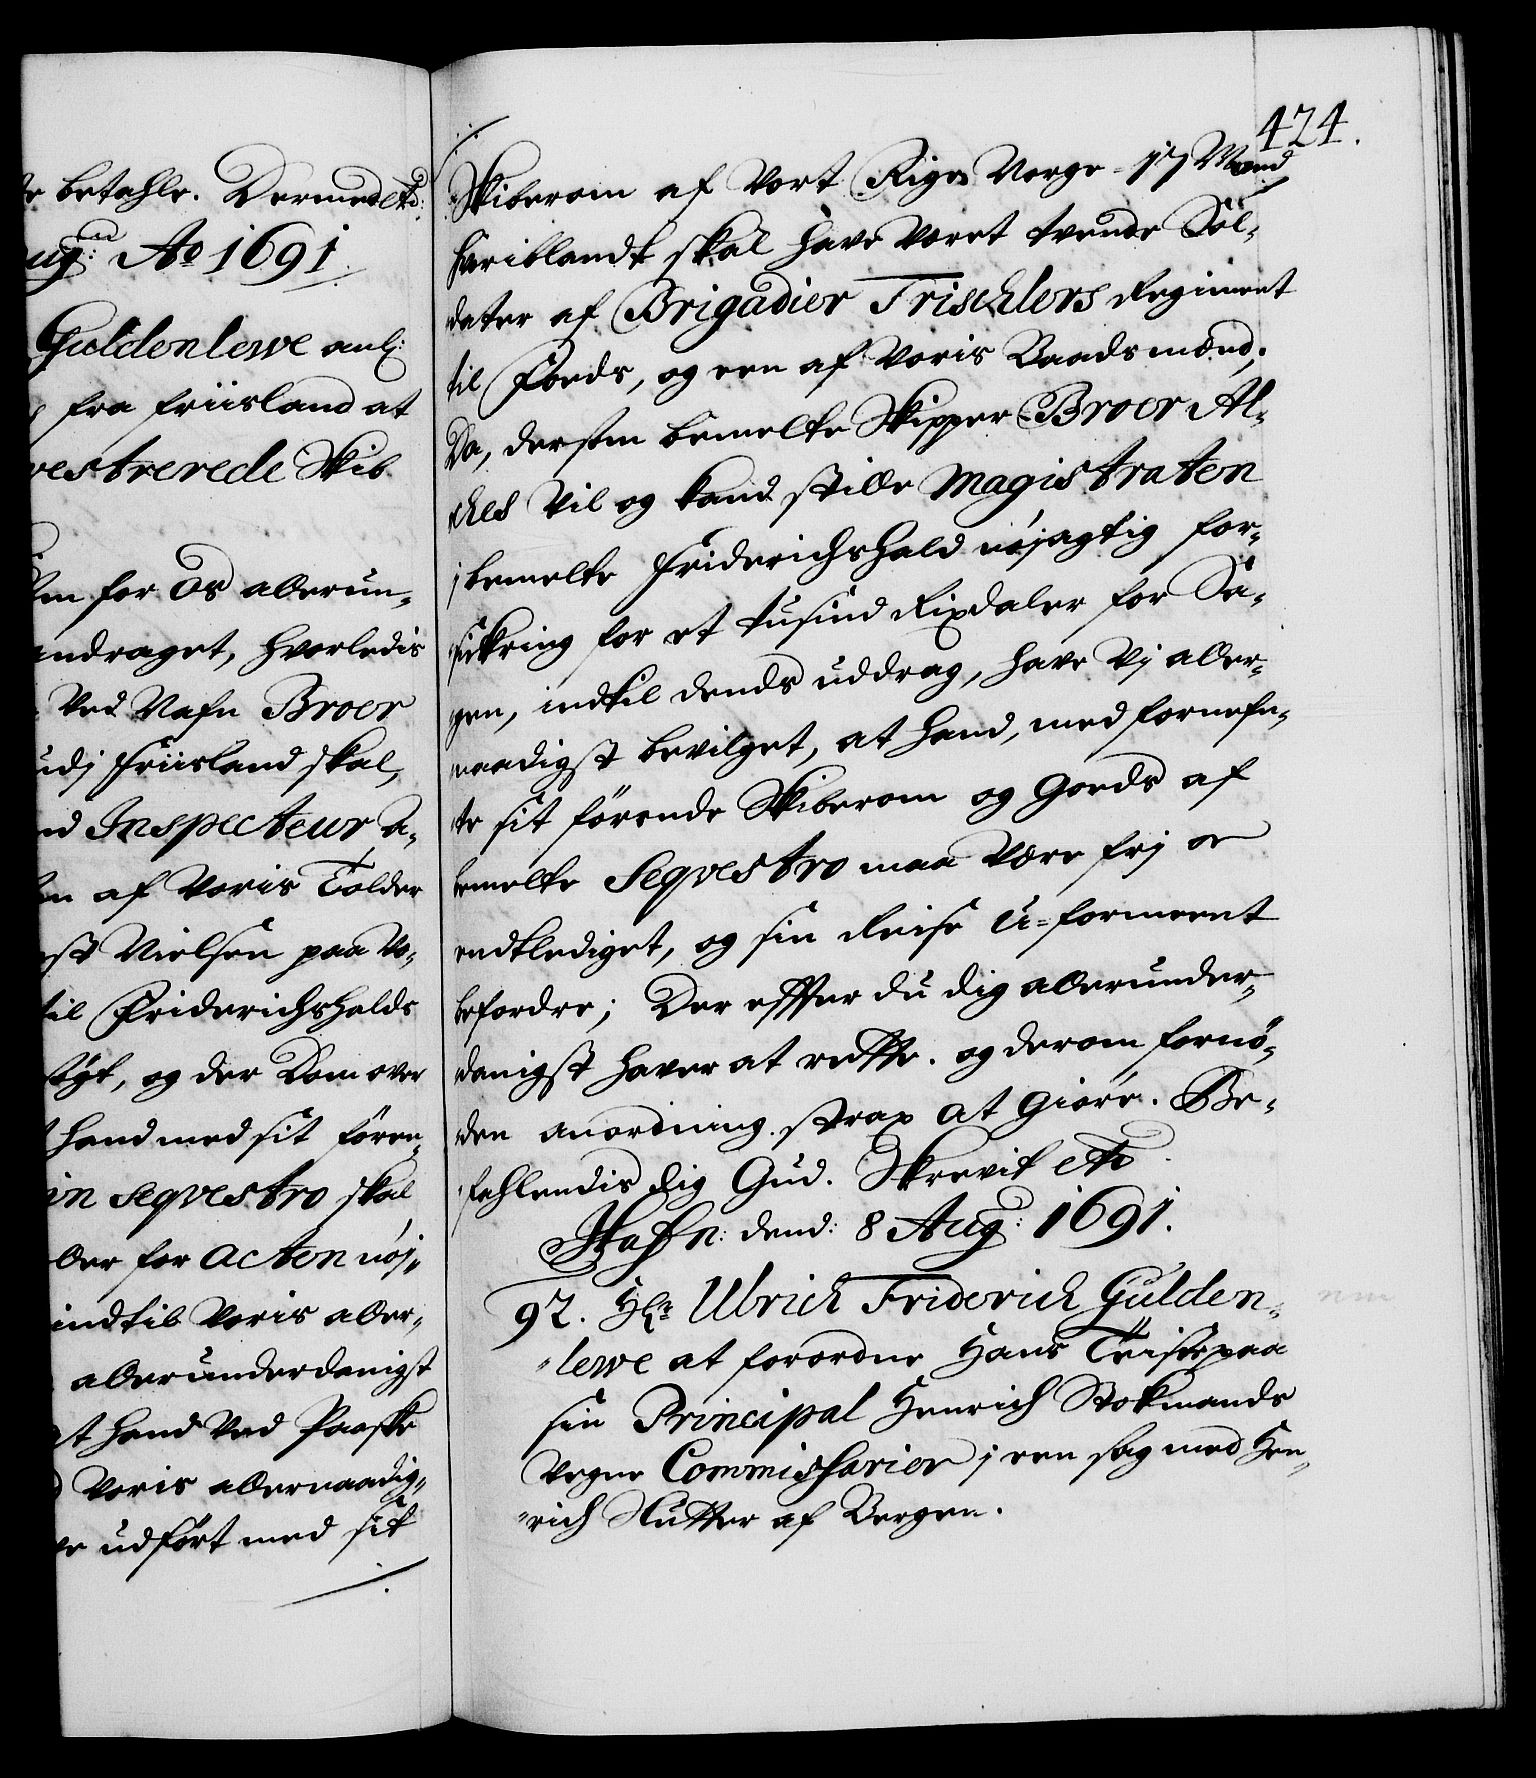 e betahle. Dermed etc:
Aug: Ao 1691.
Guldenlewe anl:
fra Friisland at
vestrerede Skib
for Os allerun-
andraget, hvorledis
Ved Nafn Broer
udj Friisland skal,
Inspecteur A-
af Voris Tolder
Nielsen paa Vo-
til Friderichshalds
, og der Dom over
hand med sit fören-
in seqvestro skal
for Acten nöj-
indtil Voris aller-
allerunderdanigst
at hand Ved Paaske
Voris allernaadig-
udfört med sit
424.
Skiberom af Vort Rige Norge 17 Mand
hvoriblandt skal have Veret tvende Sol-
dater af Brigadier Trischlers Regiment
til Foeds, og een af Voris Baadsmænd;
Da, dersom bemelte Skipper Broer Al-
ches Vil og kand stille Magistraten
j bemelte Friderichshald nöjagtig for-
sickring for et tusind Rixdaler for Sa-
gen, indtil dends uddrag, have Vj aller-
naadigst bevilget, at hand, med fornefn-
te sit förende Skiberom og Goeds af
bemelte Seqvestro maa Være frj oc
endtlediget, og sin Reise u-formeent
befordre; Der effter du dig allerunder-
danigst haver at rette. og derom fornö-
den anordning strax at giöre. Be-
fehlendis dig Gud. Skrevit etc
Hafn: dend: 8 Aug: 1691.
92. Hr Ulrich Friderich Gulden-
lewe at forordne Hans Teiste paa
sin Principal Henrich Stokmands
Vegne Commissarier j een sag med Hen-
rich Slutter af Bergen.